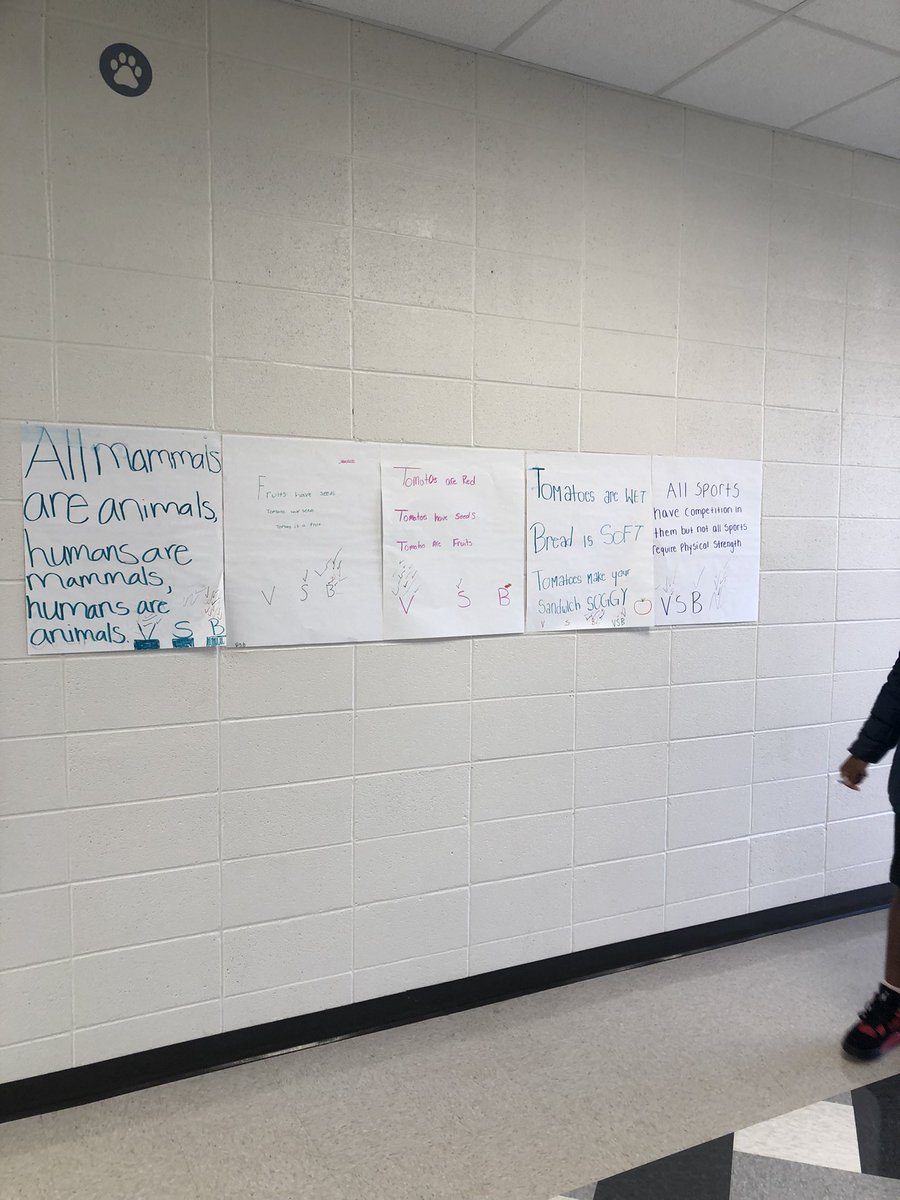 All mammals
are animals,
humans are
mammals,
humans are
animals. V S B
Fruits have seeds
Tomatoes have seeds
Tomato is a fruit
V S B
Tomatoes are Red
Tomatoes have Seeds
Tomatoes Are Fruits
V S B
Tomatoes are WET
Bread is SOFT
Tomatoes make your
Sandwich SOGGY
V S B VSB
All Sports
have competition in
them but not all sports
require Physical Strength
VSB